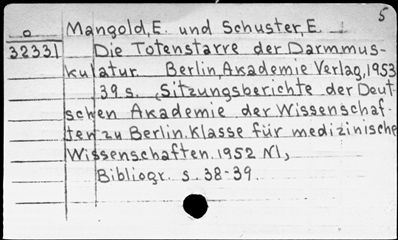 5
o Mangold, E. und Schuster, E.
32331 Die Totenstarre der Darmmus-
kulatur Berlin, Akademie Verlag, 1953
39 s. (Sitzungsberichte der Deut-
schen Akademie der Wissenschaf-
ten zu Berlin. Klasse für medizinische
Wissenschaften. 1952 N1,
Bibliogr. s. 38-39.